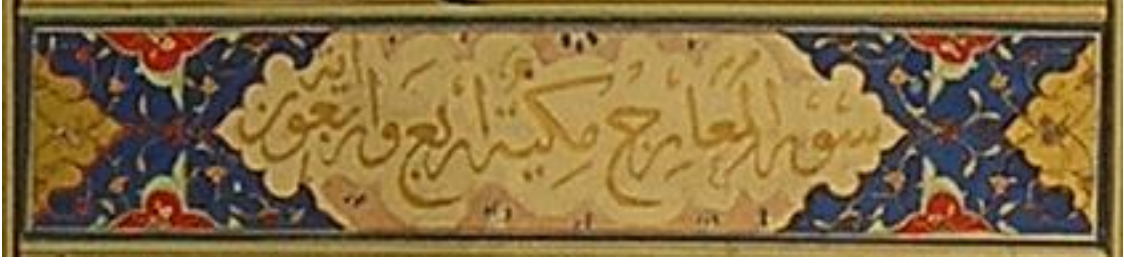 سورة المعارج مكية اربع واربعون آية